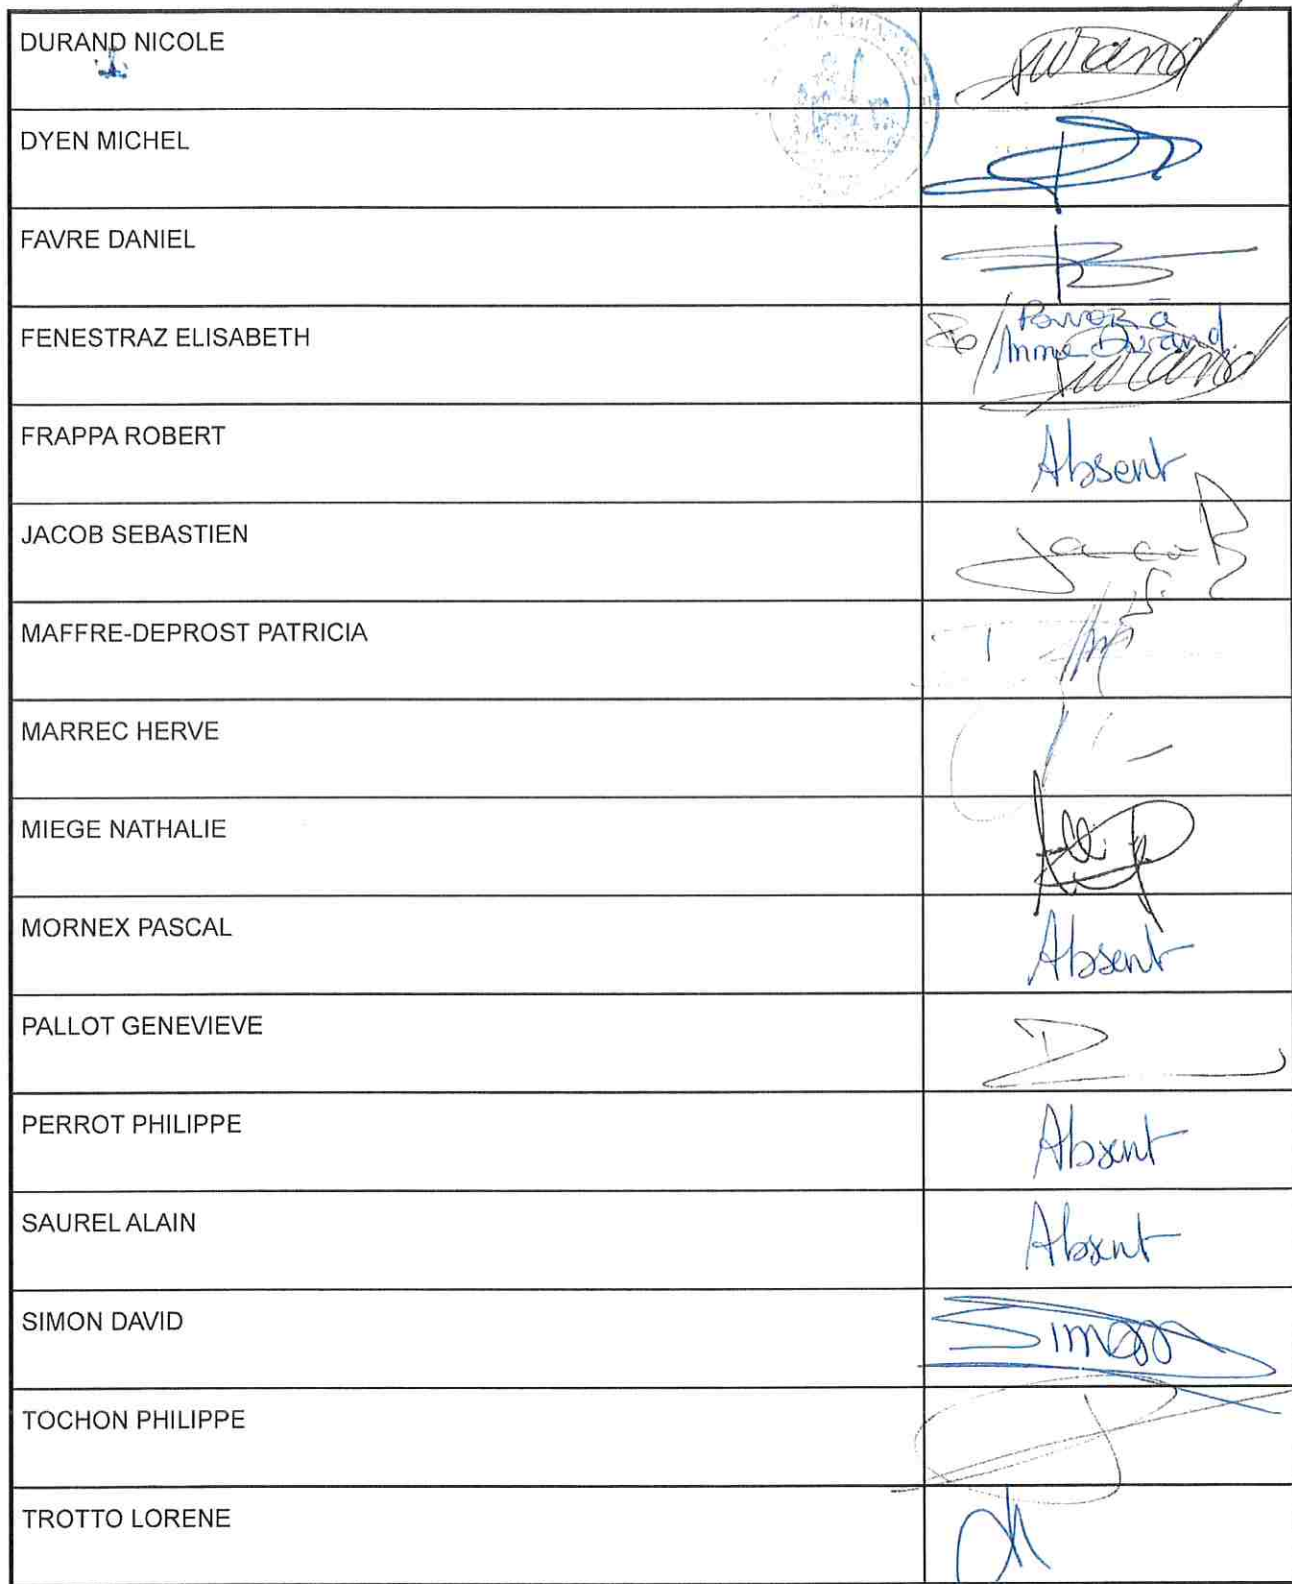 DURAND NICOLE
Durand
DYEN MICHEL
FAVRE DANIEL
FENESTRAZ ELISABETH
à
Mme Durand
Durand
FRAPPA ROBERT
Absent
JACOB SEBASTIEN
Jacob
MAFFRE-DEPROST PATRICIA
MARREC HERVE
MIEGE NATHALIE
MORNEX PASCAL
Absent
PALLOT GENEVIEVE
PERROT PHILIPPE
Absent
SAUREL ALAIN
Absent
SIMON DAVID
Simon
TOCHON PHILIPPE
TROTTO LORENE